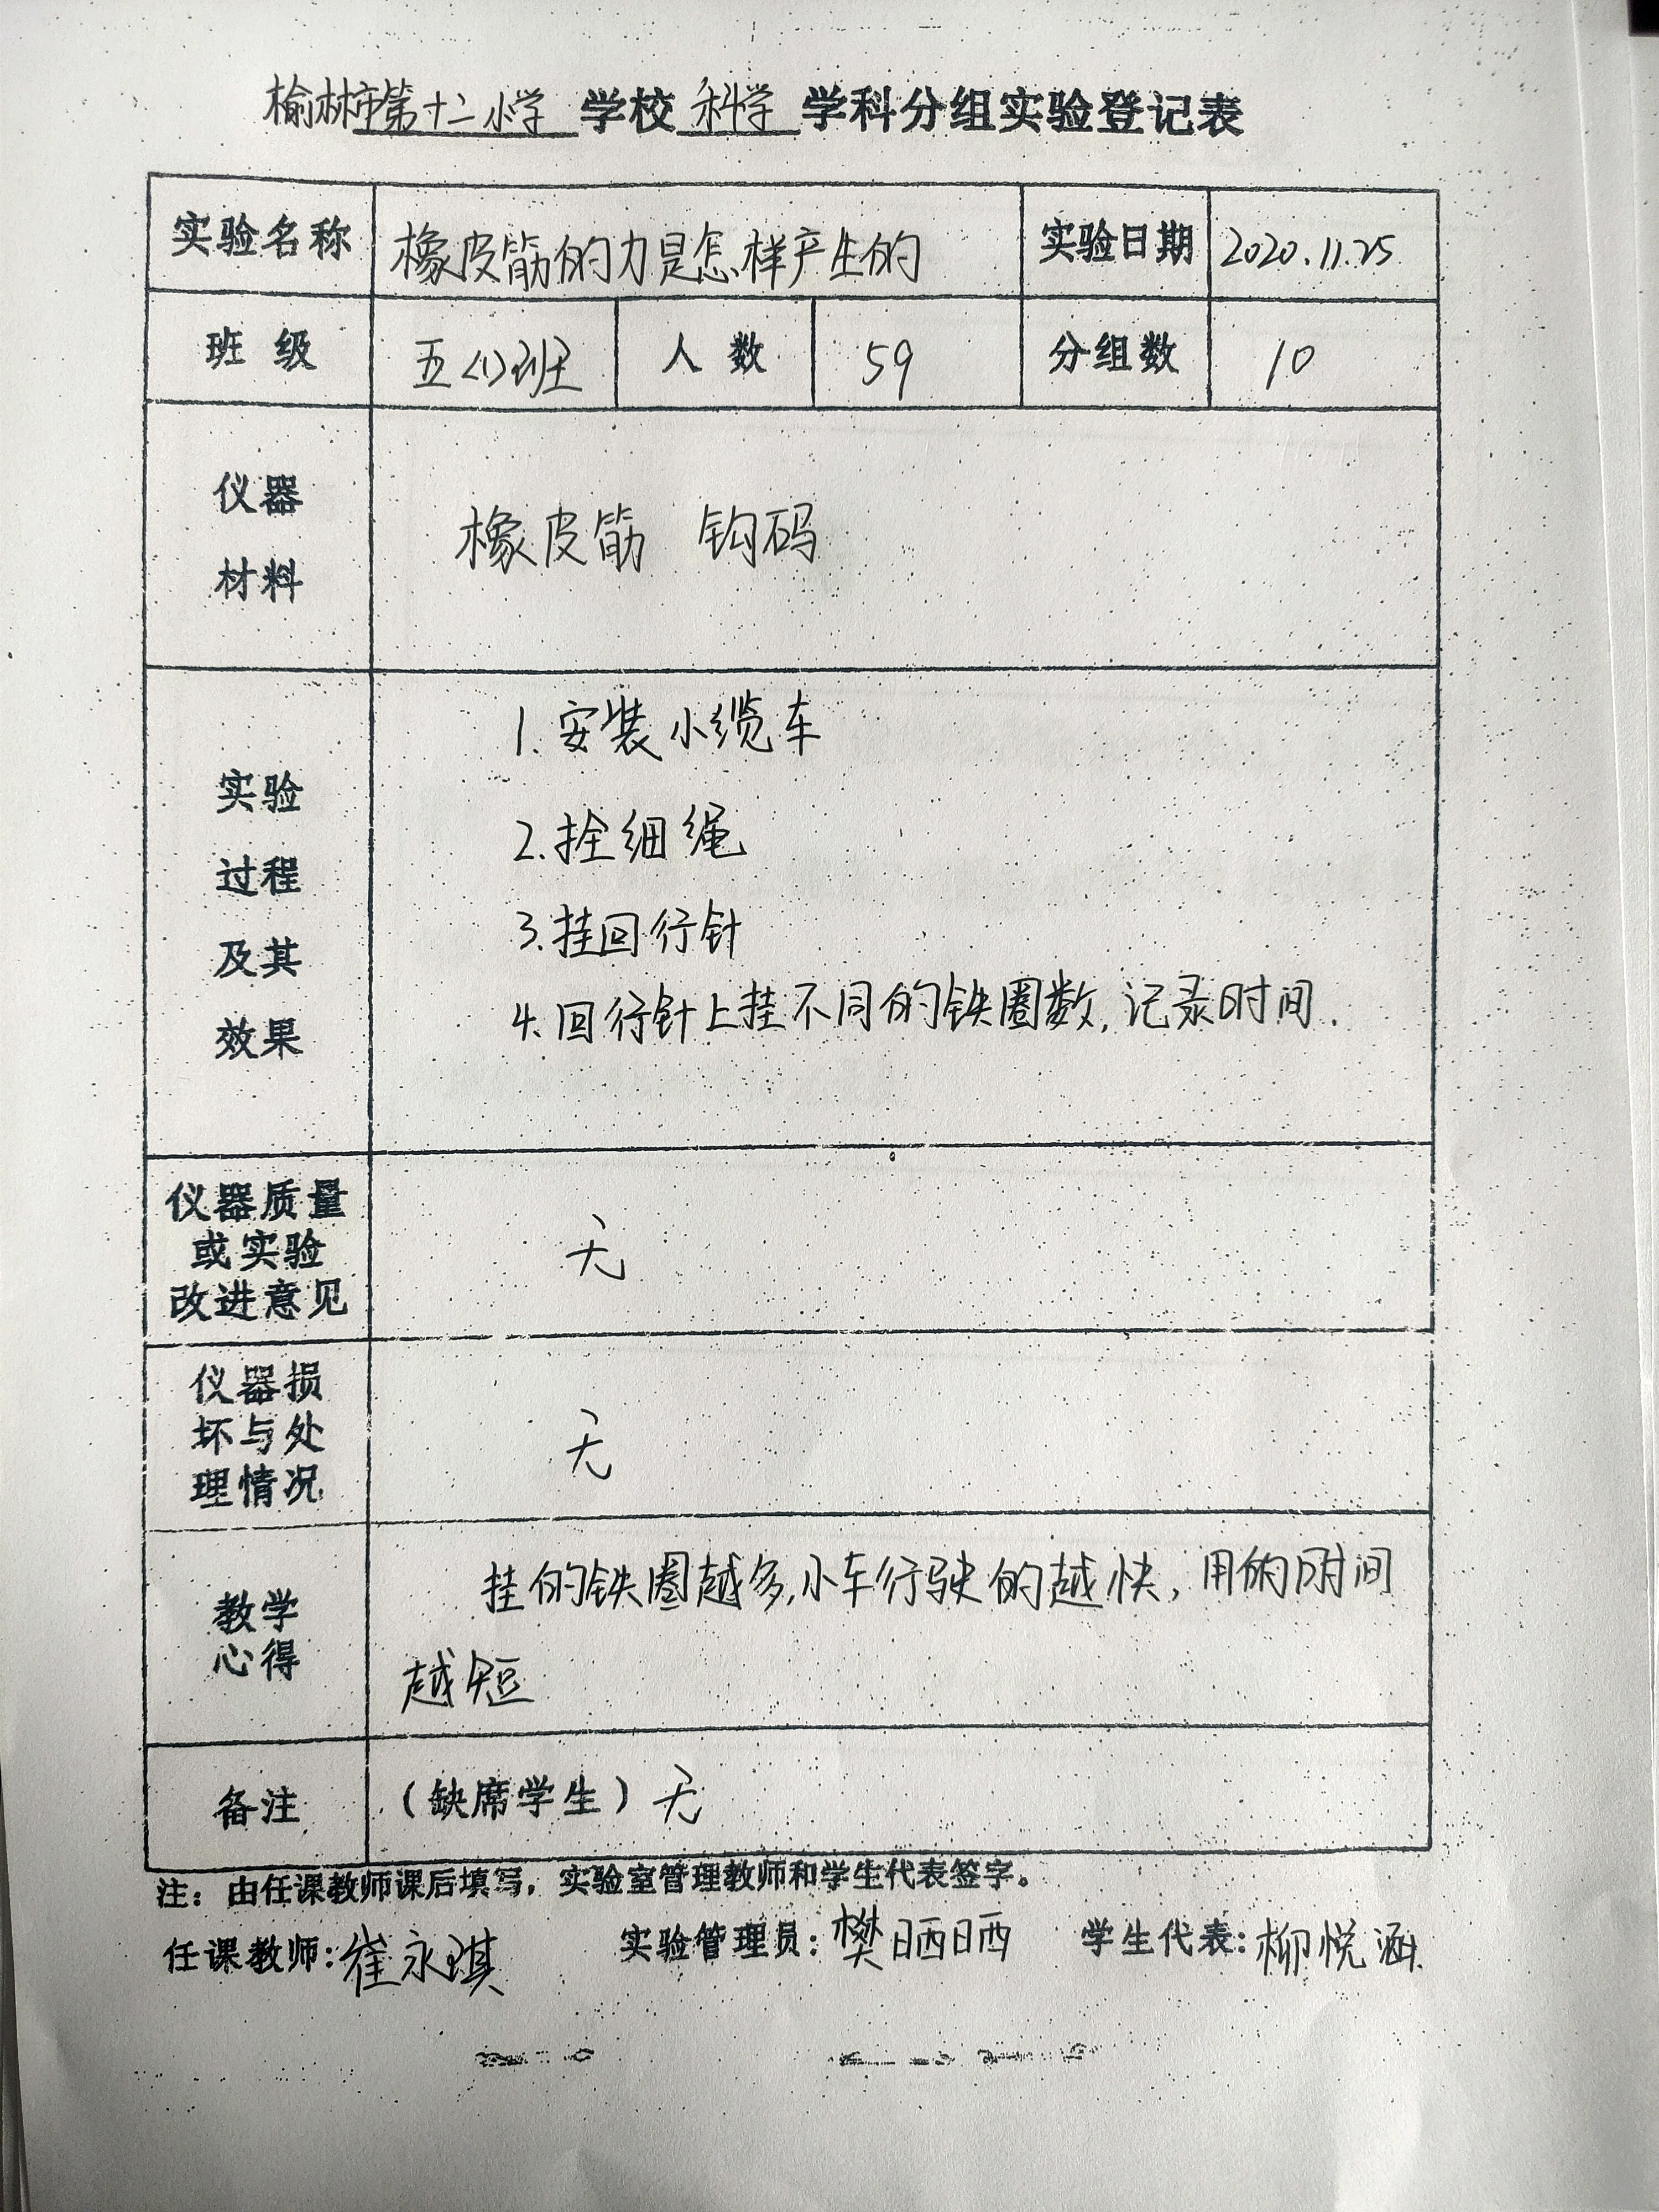 榆林市第十二小学 学校 科学 学科分组实验登记表
实验名称 橡皮筋的力是怎样产生的 实验日期 2020.11.25
班 级 五<1>班 人 数 59 分组数 10
仪器
材料
橡皮筋 钩码
实验
过程
及其
效果
1.安装小缆车
2.拴细绳
3.挂回行针
4.回行针上挂不同的铁圈数,记录时间.
仪器质量
或实验
改进意见
无
仪器损
坏与处
理情况
无
教学
心得
挂的铁圈越多,小车行驶的越快,用的时间
越短
备注 (缺席学生) 无
注：由任课教师课后填写，实验室管理教师和学生代表签字。
任课教师:崔永琪 实验管理员:樊晒晒 学生代表:柳悦涵